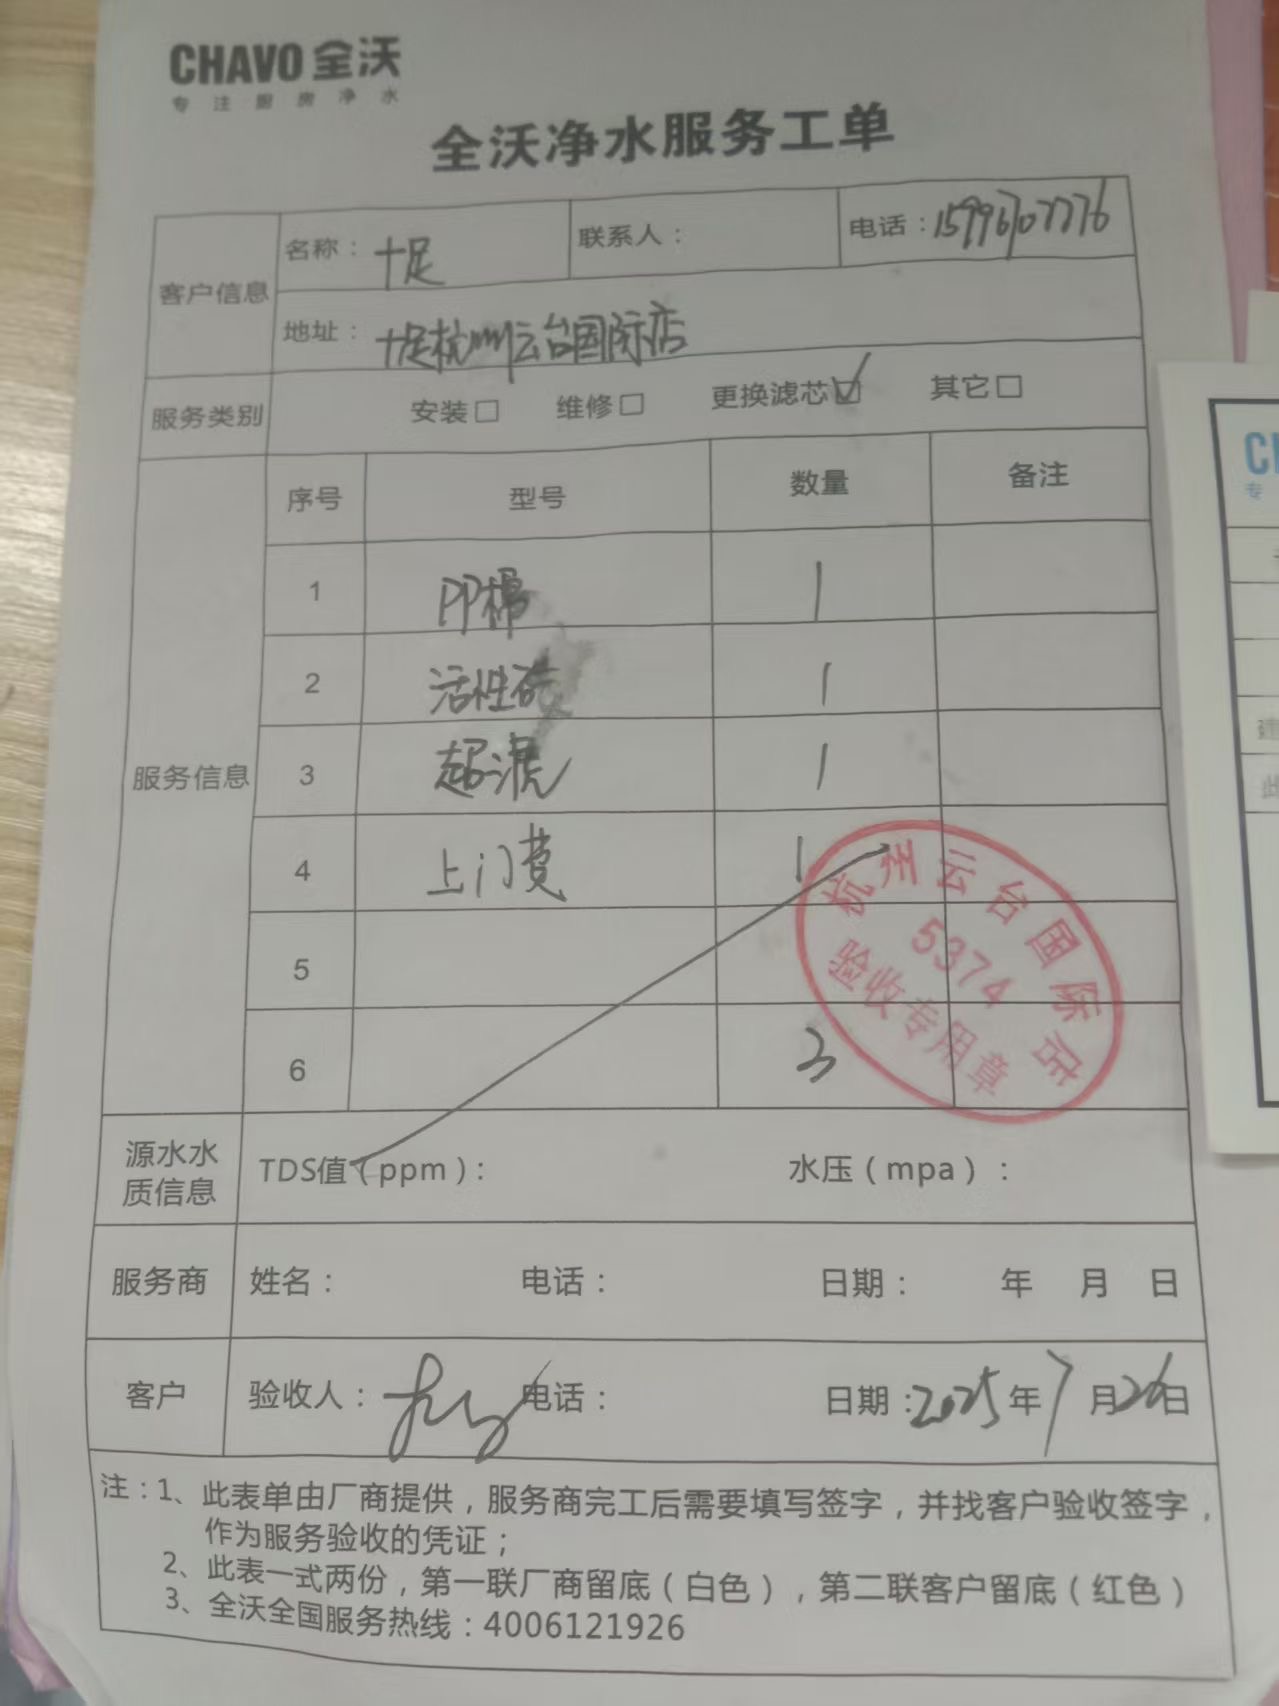 CHAVO 全沃
专注厨房净水
全沃净水服务工单
客户信息 名称：十足 联系人： 电话：15996707776
地址：十足杭州云台国际店
服务类别 安装□ 维修□ 更换滤芯☑ 其它□
服务信息 序号 型号 数量 备注
1 PP棉 1
2 活性炭 1
3 超滤 1
4 上门费 1
5
6 3
杭州云台国际店
5374
验收专用章
源水水质信息 TDS值（ppm）： 水压（mpa）：
服务商 姓名： 电话： 日期： 年 月 日
客户 验收人： 电话： 日期：2025年7月26日
注：1、此表单由厂商提供，服务商完工后需要填写签字，并找客户验收签字，
作为服务验收的凭证；
2、此表一式两份，第一联厂商留底（白色），第二联客户留底（红色）
3、全沃全国服务热线：4006121926